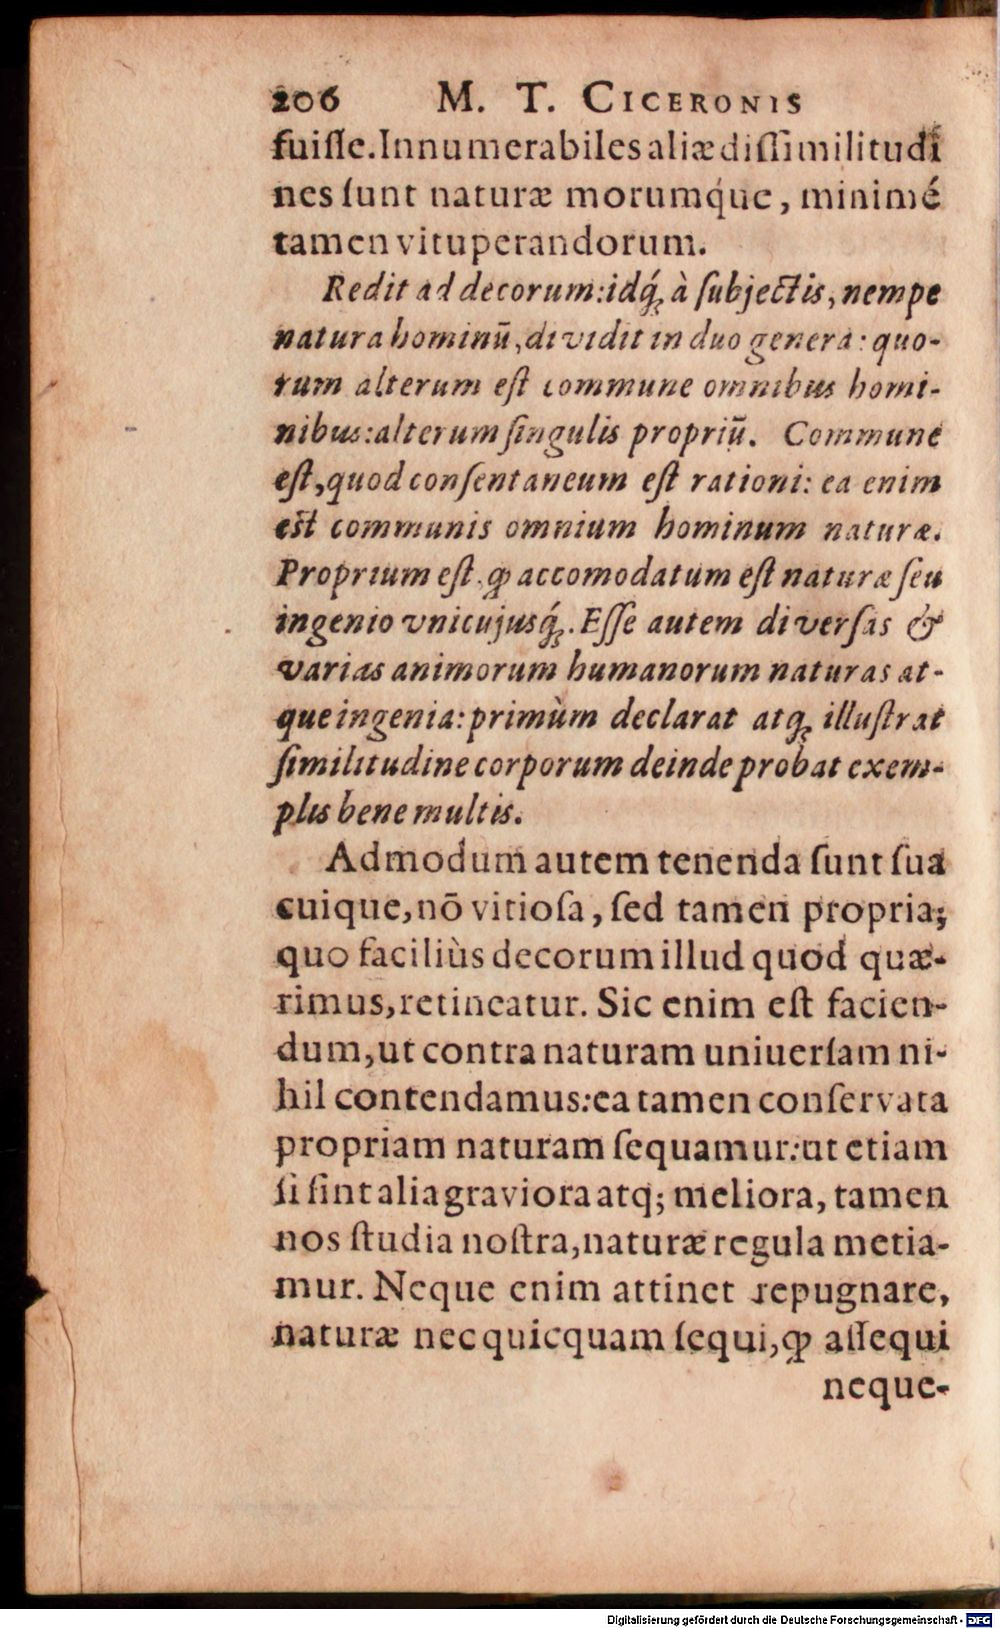 206 M. T. CICERONIS
fuiſſe. Innumerabiles aliæ diſſimilitudi
nes ſunt naturæ morumq́ue, minimé
tamen vituperandorum.
Redit ad decorum: idq́ꝫ à ſubjectis, nempe
natura hominū, dividit in duo genera: quo-
rum alterum eſt commune omnibus homi-
nibus: alterum ſingulis propriū. Commune
eſt, quod conſentaneum eſt rationi: ea enim
est communis omnium hominum naturæ.
Proprium eſt, ꝙ accomodatum eſt naturæ ſeu
ingenio vnicujusq́ꝫ. Eſſe autem diverſas &
varias animorum humanorum naturas at-
que ingenia: primùm declarat atqꝫ illuſtrat
ſimilitudine corporum deinde probat exem-
plis bene multis.
Admodum autem tenenda ſunt ſua
cuique, nō vitioſa, ſed tamen propria;
quo faciliùs decorum illud quod quæ-
rimus, retineatur. Sic enim eſt facien-
dum, ut contra naturam uniuerſam ni-
hil contendamus: ea tamen conſervata
propriam naturam ſequamur: ut etiam
ſi ſint alia graviora atq; meliora, tamen
nos ſtudia noſtra, naturæ regula metia-
mur. Neque enim attinet repugnare,
naturæ nec quicquam ſequi, ꝙ aſſequi
neque-
Digitalisierung gefördert durch die Deutsche Forschungsgemeinschaft - DFG